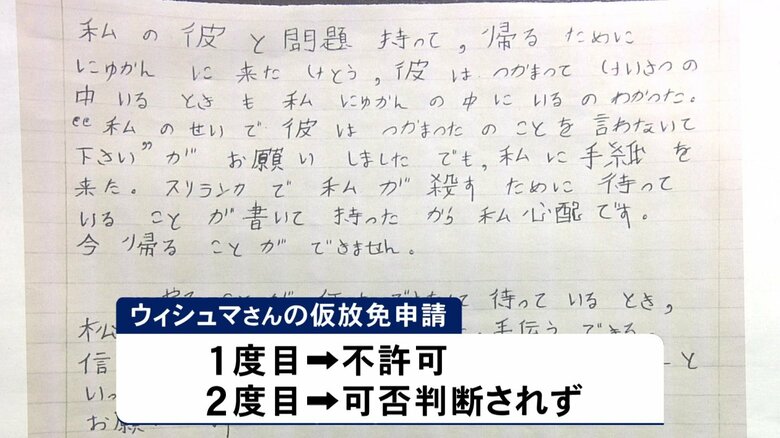 私の彼と問題持って,帰るために
にゅかんに来たけとう,彼はつかまってけいさつの
中いるときも私にゅかんの中にいるのわかった。
“私のせいで彼はつかまったのことを言わないて
下さい”がお願いしましたでも,私に手紙を
来た。スリランクで私が殺すために待って
いることが書いて持ったから私心配です。
今帰ることができません。
待っているとき,
手伝うできる
信
と
いっ
お願
ウィシュマさんの仮放免申請
1度目➡不許可
2度目➡可否判断されず